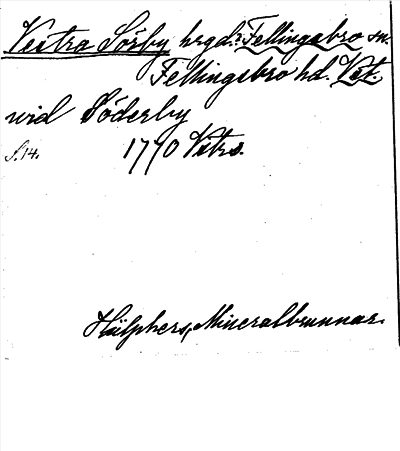 Vestra Sörby hrgd: Fellingsbro sn.
Fellingsbro hd. Vst.
wid Söderby
S. 14. 1770 Vstrs.
Hülphers, Mineralbrunnar.